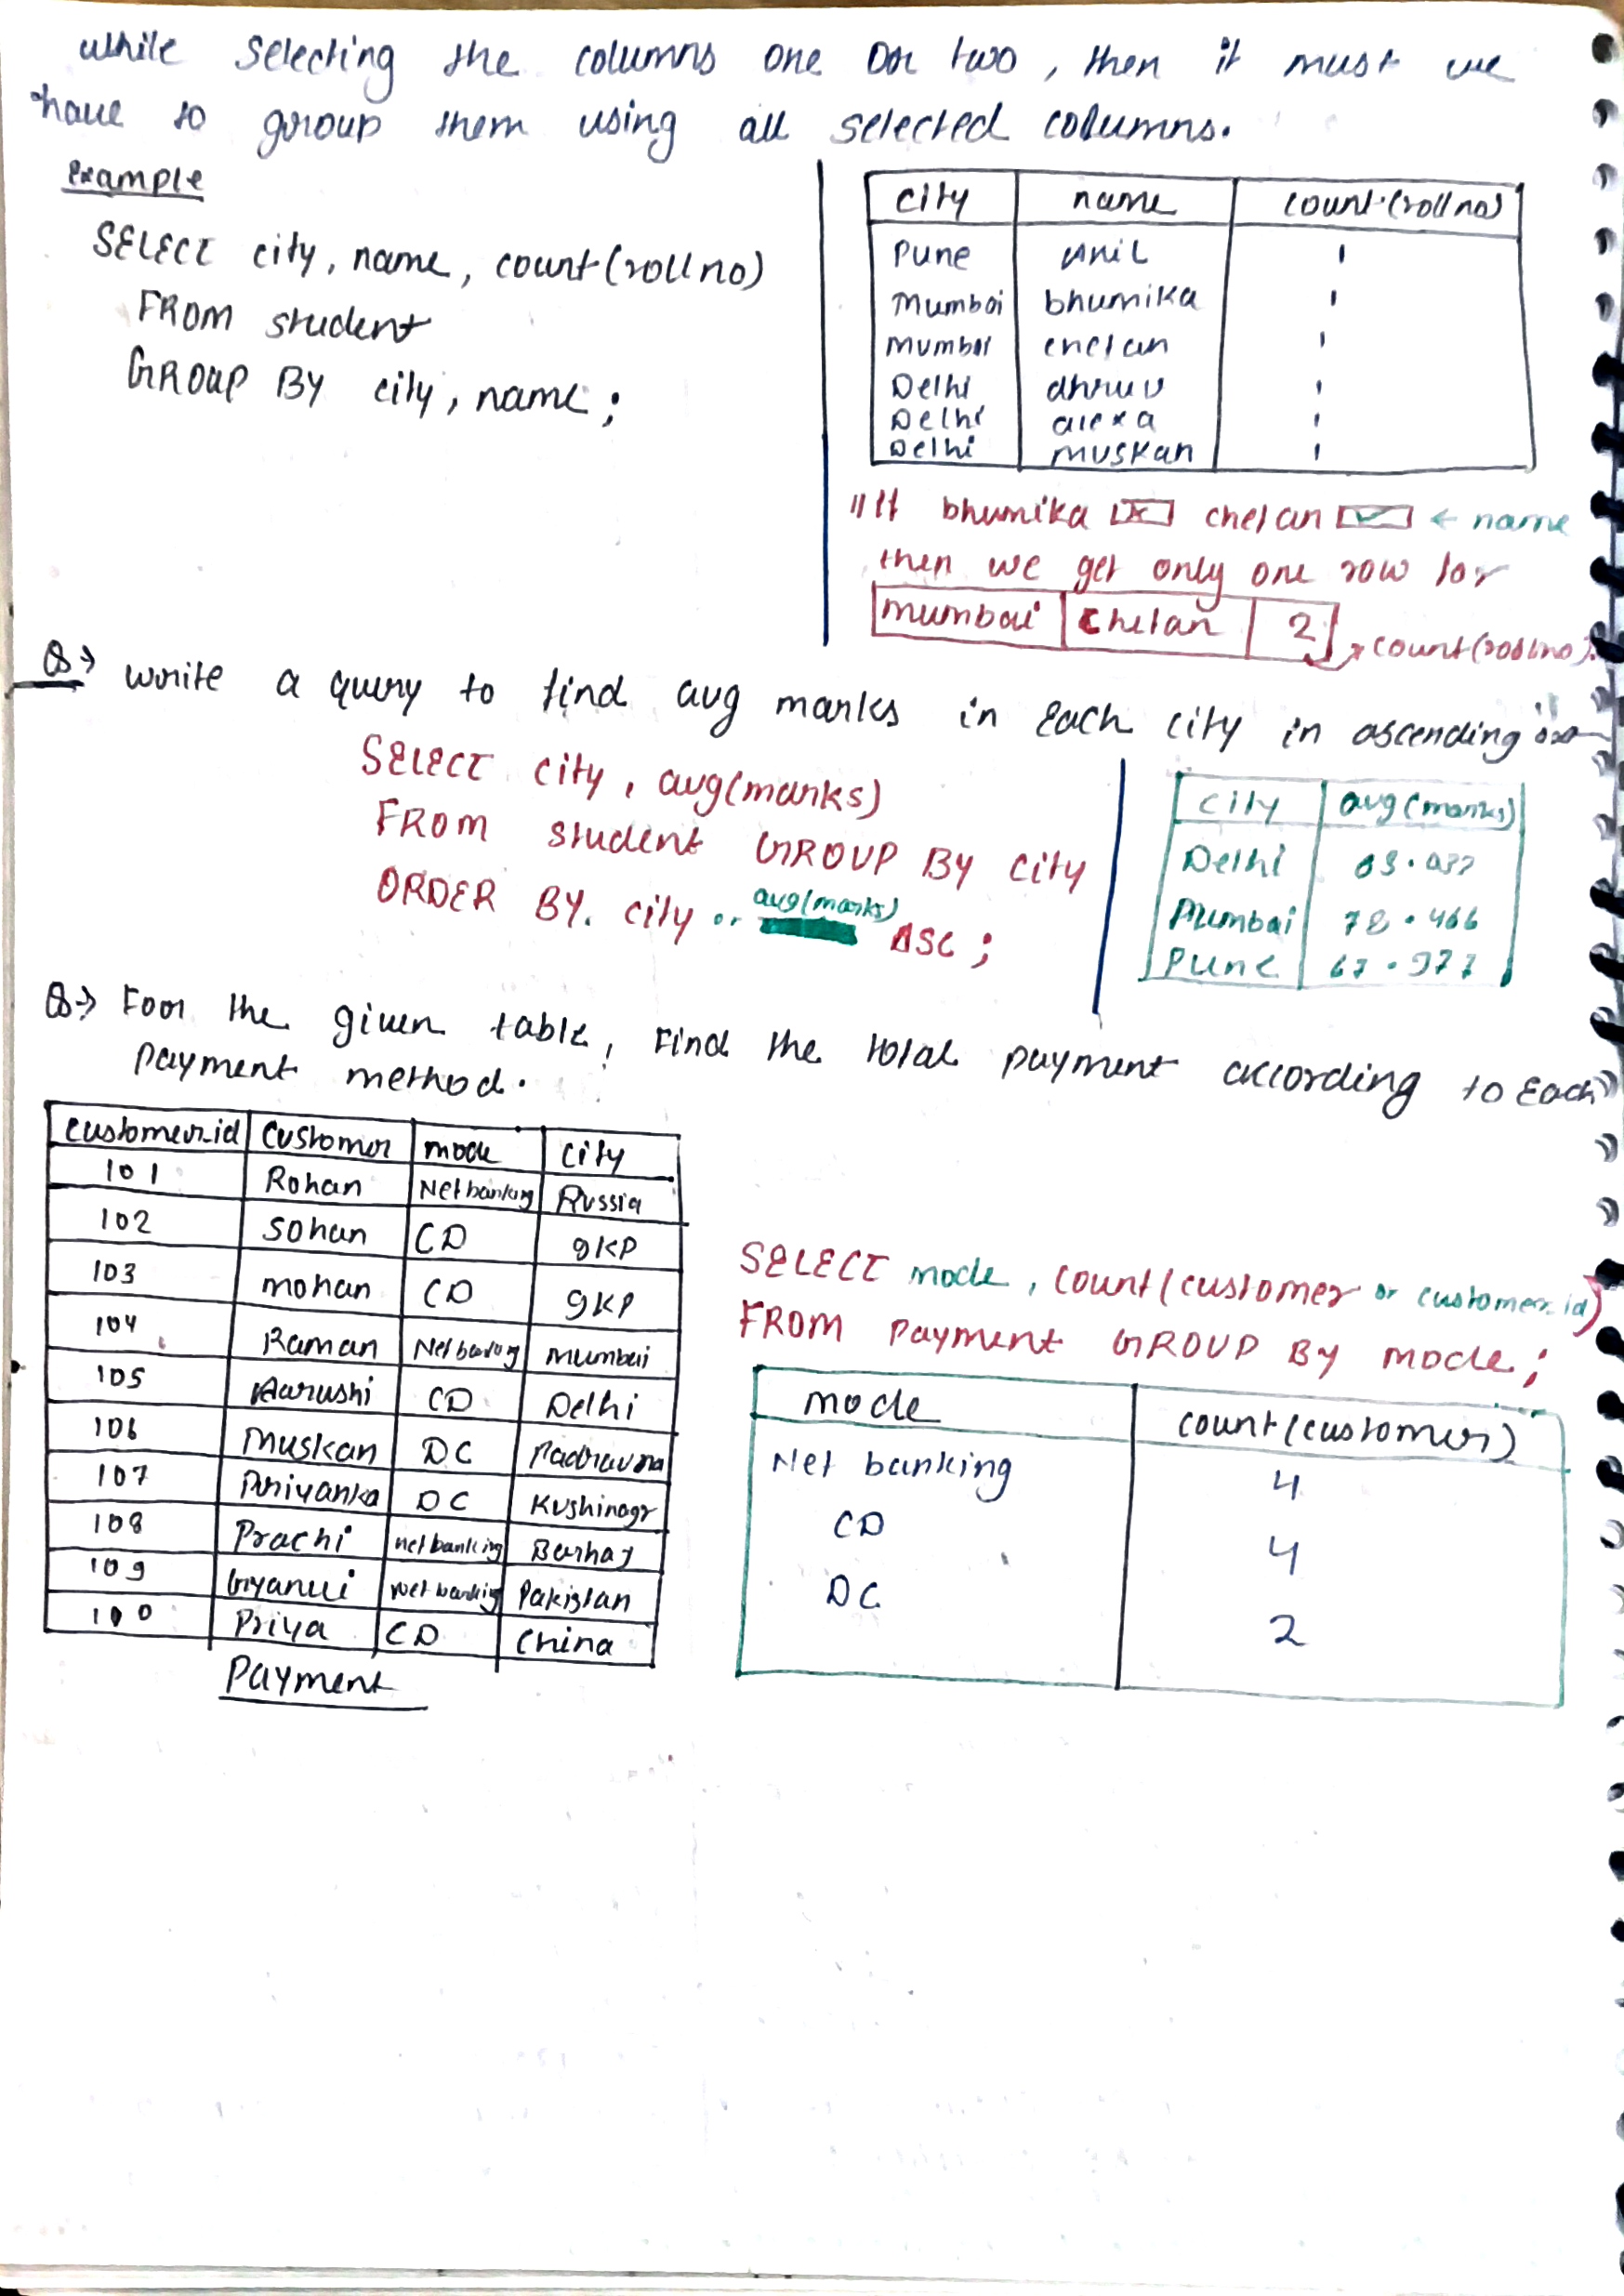 while selecting the columns one or two, then it must we
have to group them using all selected columns.
Example
SELECT city, name, count(rollno)
FROM student
GROUP BY city, name;
city name count(rollno)
Pune Anil 1
Mumbai bhumika 1
Mumbai chetan 1
Delhi dhruv 1
Delhi alexa 1
Delhi muskan 1
// If bhumika chetan ← name
then we get only one row for
mumbai Chetan 2 → count(rollno).
Q→ write a query to find avg marks in each city in ascending
SELECT city, avg(marks)
FROM student GROUP BY city
ORDER BY. city or avg(marks) ASC;
city avg(marks)
Delhi
Mumbai 78.466
Pune 67.977
Q→ For the given table, Find the total payment according to Each
payment method.
customer_id customer mode city
101 Rohan Netbanking Russia
102 Sohan CD gkp
103 mohan CD gkp
104 Raman Netbanking mumbai
105 Aarushi CD Delhi
106 Muskan DC Padrauna
107 Priyanka DC Kushinagr
108 Prachi netbanking Barhaj
109 Netbanking Pakistan
100 Priya CD China
Payment
SELECT mode, count(customer or customer_id)
FROM payment GROUP BY mode;
mode count(customer)
Net banking 4
CD 4
DC 2